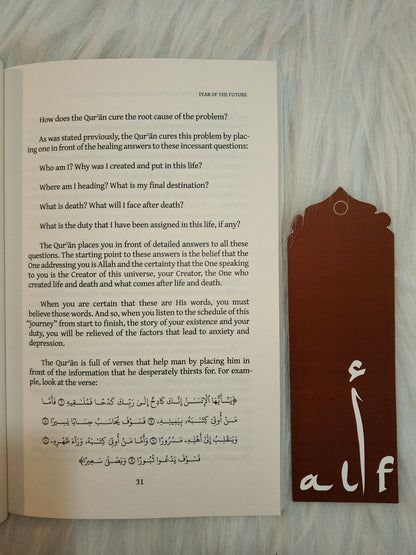 FEAR OF THE FUTURE
How does the Qur'ān cure the root cause of the problem?
As was stated previously, the Qur'ān cures this problem by plac-
ing one in front of the healing answers to these incessant questions:
Who am I? Why was I created and put in this life?
Where am I heading? What is my final destination?
What is death? What will I face after death?
What is the duty that I have been assigned in this life, if any?
The Qur'ān places you in front of detailed answers to all these
questions. The starting point to these answers is the belief that the
One addressing you is Allah and the certainty that the One speaking
to you is the Creator of this universe, your Creator, the One who
created life and death and what comes after life and death.
When you are certain that these are His words, you must
believe those words. And so, when you listen to the schedule of this
"journey" from start to finish, the story of your existence and your
duty, you will be relieved of the factors that lead to anxiety and
depression.
The Qur'ān is full of verses that help man by placing him in
front of the information that he desperately thirsts for. For exam-
ple, look at the verse:
﴿يَٰٓأَيُّهَا ٱلْإِنسَٰنُ إِنَّكَ كَادِحٌ إِلَىٰ رَبِّكَ كَدْحًا فَمُلَٰقِيهِ ۝ فَأَمَّا
مَنْ أُوتِيَ كِتَٰبَهُۥ بِيَمِينِهِۦ ۝ فَسَوْفَ يُحَاسَبُ حِسَابًا يَسِيرًا ۝
وَيَنقَلِبُ إِلَىٰٓ أَهْلِهِۦ مَسْرُورًا ۝ وَأَمَّا مَنْ أُوتِيَ كِتَٰبَهُۥ وَرَآءَ ظَهْرِهِۦ ۝
فَسَوْفَ يَدْعُوا۟ ثُبُورًا ۝ وَيَصْلَىٰ سَعِيرًا﴾
31
أ
alf